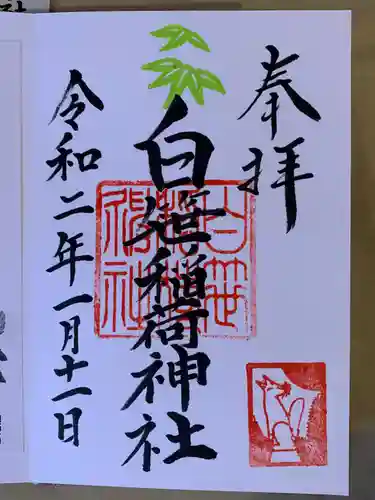 奉拝
白笹稲荷神社
令和二年一月十一日
白笹稲荷神社
社